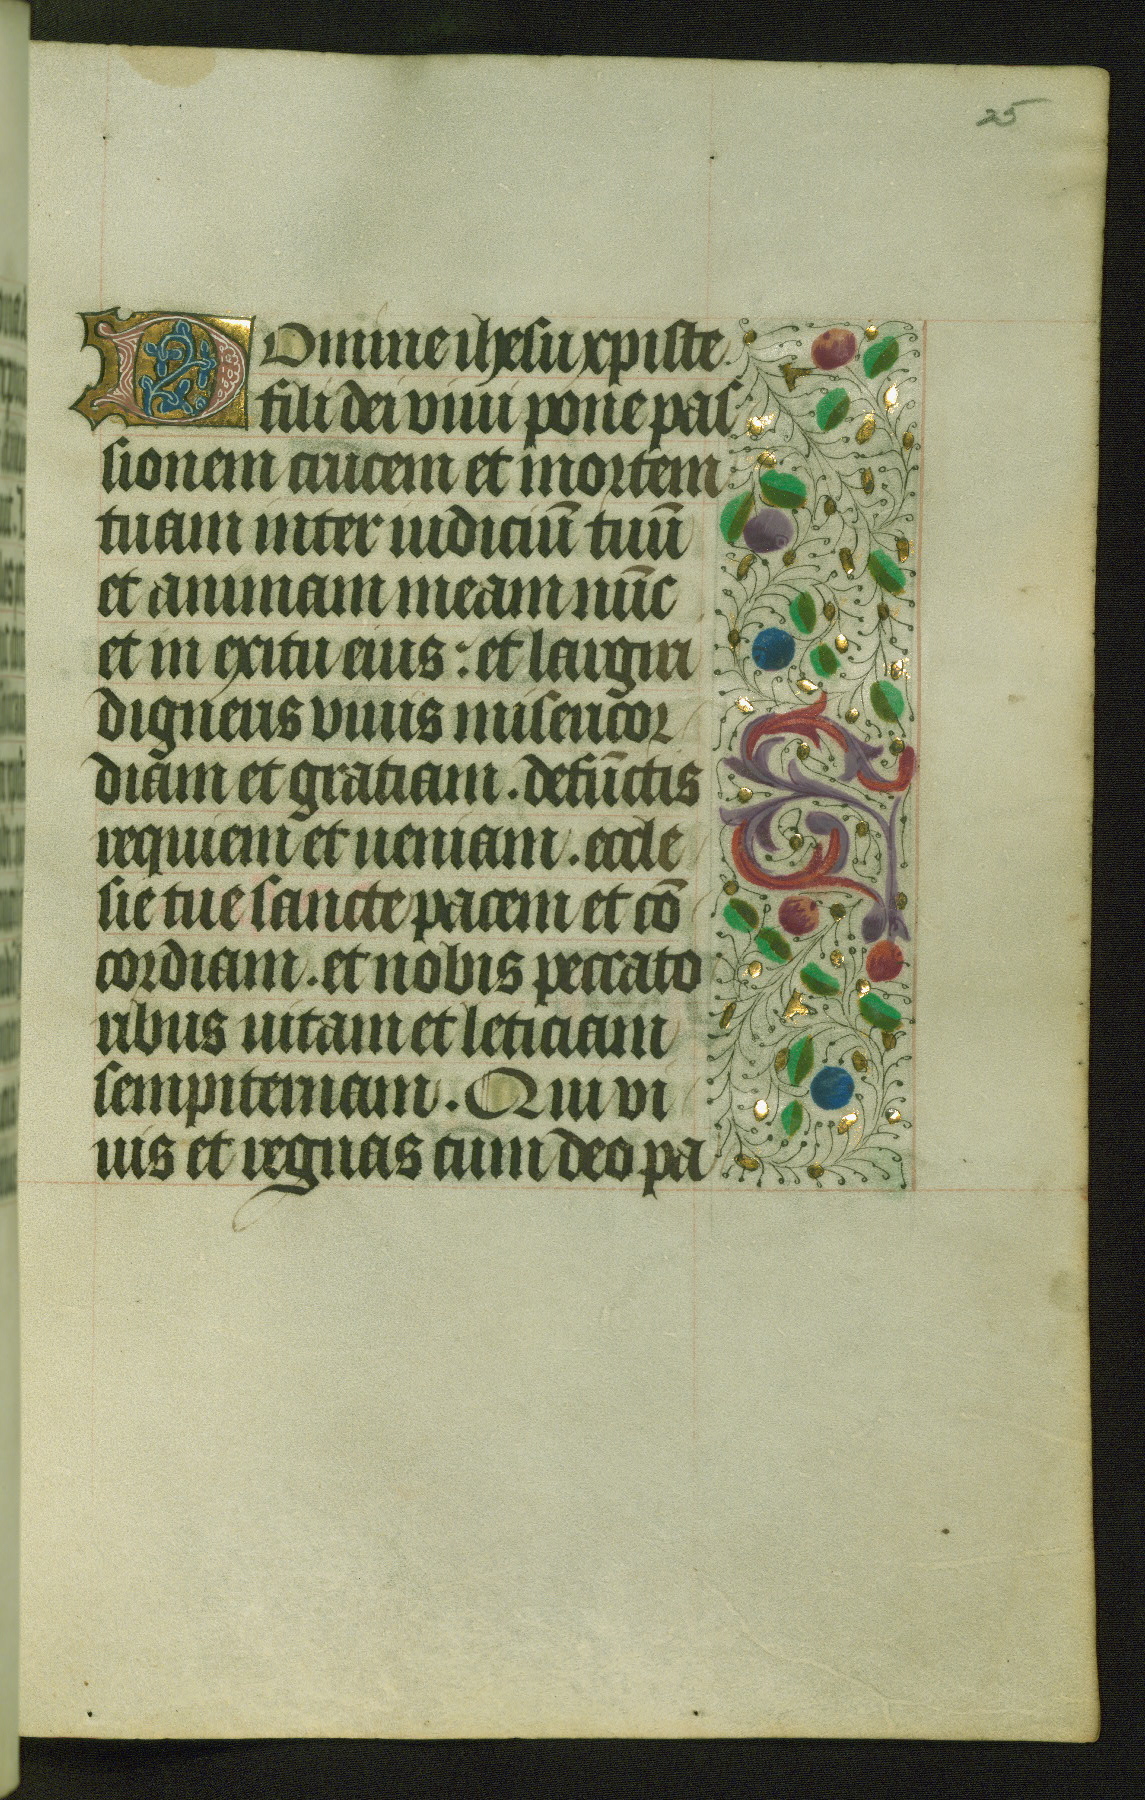 25
Domine ihesu xpiste
fili dei viui pone pas
sionem crucem et mortem
tuam inter iudiciū tuū
et animam meam nūc
et in exitu eius : et largiri
digneris viuis misericor
diam et gratiam . defūctis
requiem et ueniam . eccle
sie tue sancte pacem et cō
cordiam . et nobis peccato
ribus uitam et leticiam
sempiternam . Qui vi
uis et regnas cum deo pa